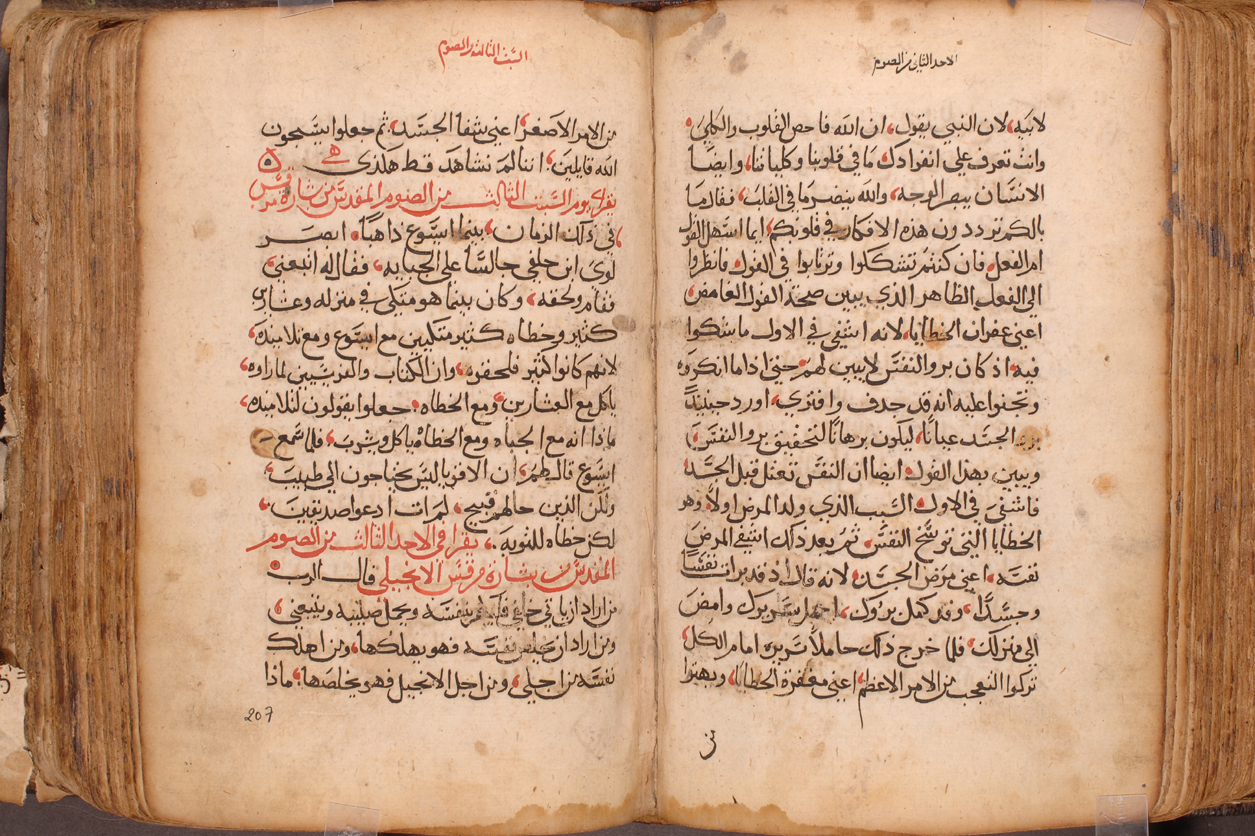 الاحد الثاني من الصوم
لابيه، لان النبي يقول، ان الله فاحص القلوب والكلي،
وانت تعرف علي انفرادك ما في قلوبنا وكلياتنا، وايضا
الانسان يبصر الوجه، والله ينضر ما في القلب، فقال ما
بالكم ترددون هذه الافكار في قلوبكم، ايما اسهل القول
ام الفعل، فان كنتم تشكلوا وترتابوا في القول، فانظروا
الي الفعل الظاهر الذي يبين صحة القول الغامض،
اعني غفران الخطايا، لانه اشفي في الاول ما شكوا
فيه، اذ كان برو النفس لا يبين لهم، حتي اذا ما انكروه
وتجنوا عليه انه قد جدف وافتري، اورد حينيذ
برء الجسد عيانا، ليكون برهانا لتحقيق برو النفس،
ويبين بهذا القول، ايضا ان النفس تعتل قبل الجسد،
فاشفي في الاول، السبب الذي ولد المرض اولا، وهو
الخطايا التي توسخ النفس، ثم بعد ذلك اشفي المرض
نفسه، اعني مرض الجسد، لانه قال اذ قد برات نفسا
وجسدا، وقد كمل بروك، احمل سريرك وامض
الي منزلك، فلما خرج ذلك حاملا سريره امام الكل
تركوا التعجب من الامر الاعظم، اعني مغفرة الخطايا، وبهتوا
السبت الثالث من الصوم
من الامر الاصغر، اعني شفا الجسد، ثم جعلوا يسبحون
الله قايلين، اننا لم نشاهد قط هكذي
يقرا يوم السبت الثالث من الصوم المقدس من بشارة مرقس
في ذلك الزمان، بينما ايسوع ذاهبا، ابصر
لوي ابن حلفي جالسا علي الجبايه، فقال له اتبعني،
فقام ولحقه، وكان بينما هو متكي في منزله وعشارين
كثير وخطاه كثير متكيين مع ايسوع ومع تلاميذه،
لانهم كانوا كثير فلحقوه، وان الكتاب والفريسيين لما راوه،
ياكل مع العشارين، ومع الخطاه، جعلوا يقولون لتلاميذه،
ماذا انه مع الجباه ومع الخطاة ياكل ويشرب، فلما سمع
ايسوع قال لهم، ان الاقويا ليس يحتاجون الي طبيب،
ولكن الذين حالهم قبيح، لم ات ادعوا صديقين،
لكن خطاه للتوبه، يقرا في الاحد الثالث من الصوم
المقدس من بشارة مرقس الانجيلي قال الرب
من اراد ان ياتي خلفي فليكفر بنفسه ويحمل صليبه ويتبعني،
ومن اراد ان يخلص نفسه فهو يهلكها، ومن اهلك
نفسه من اجلي، ومن اجل الانجيل فهو يخلصها، ماذا
207